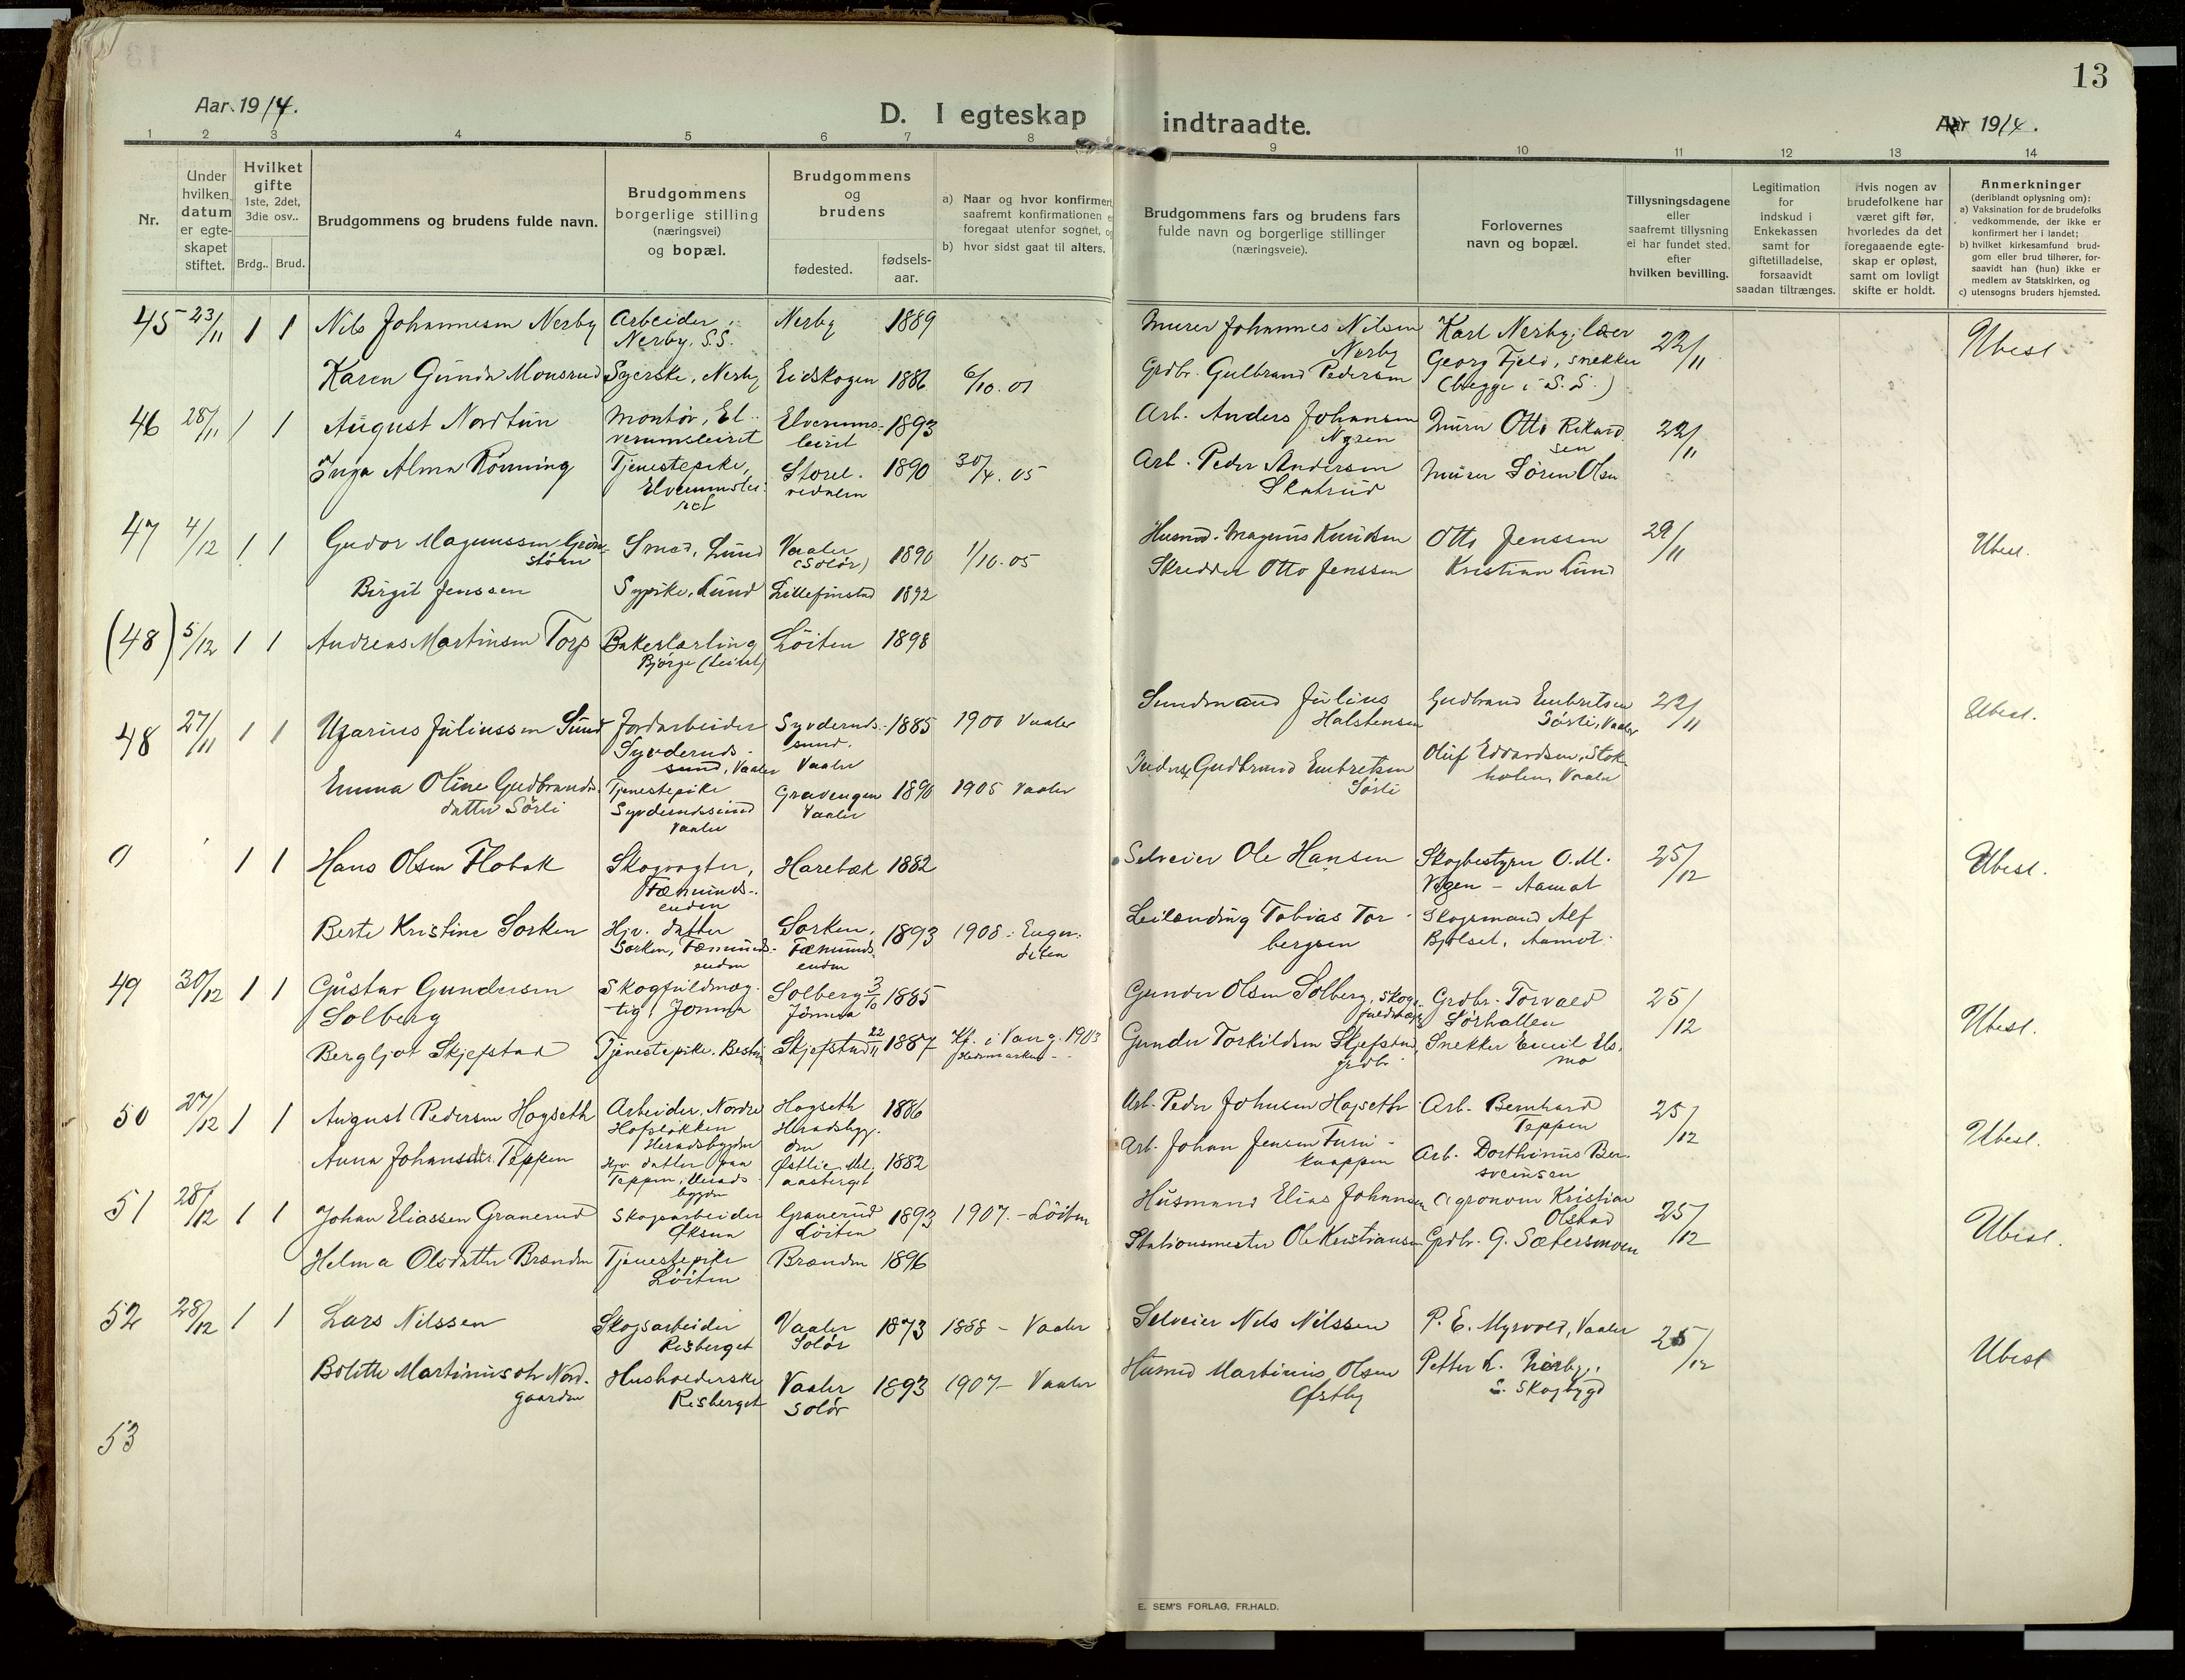 13
Aar 1914.
D. I egteskap indtraadte.
Aar 1914.
1 2 3 4 5 6 7 8 9 10 11 12 13 14
Nr.
Under
hvilken
datum
er egte-
skapet
stiftet.
Hvilket
gifte
1ste, 2det,
3die osv..
Brdg.. Brud.
Brudgommens og brudens fulde navn.
Brudgommens
borgerlige stilling
(næringsvei)
og bopæl.
Brudgommens
og
brudens
fødested.
fødsels-
aar.
a) Naar og hvor konfirmert
saafremt konfirmationen
foregaat utenfor sognet,
b) hvor sidst gaat til alters.
Brudgommens fars og brudens fars
fulde navn og borgerlige stillinger
(næringsveie).
Forlovernes
navn og bopæl.
Tillysningsdagene
eller
saafremt tillysning
ei har fundet sted,
efter
hvilken bevilling.
Legitimation
for
indskud i
Enkekassen
samt for
giftetilladelse,
forsaavidt
saadan tiltrænges.
Hvis nogen av
brudefolkene har
været gift før,
hvorledes da det
foregaaende egte-
skap er opløst,
samt om lovligt
skifte er holdt.
Anmerkninger
(deriblandt oplysning om):
a) Vaksination for de brudefolks
vedkommende, der ikke er
konfirmert her i landet;
b) hvilket kirkesamfund brud-
gom eller brud tilhører, for-
saavidt han (hun) ikke er
medlem av Statskirken, og
c) utensogns bruders hjemsted.
45 23/11 1 1 Nils Johannesen Nerby Arbeider, Nerby 1889 Murer Johannes Nilsen Karl Nerby, 22/11 Ubesl
Nerby. S.S. Nerby Georg Fjeld, snekker
Karen Gunda Monsrud Syerske, Nerby Eidskogen 1886 6/10.01 Grdbr. Gulbrand Pedersen (begge i S.S.)
46 28/11 1 1 August Nordtun Montør, El- Elverums- 1893 Arb. Anders Johansen Murer Otto Rikard 22/11
verumsleiret leiret Nyren sen
Inga Alma Rønning Tjenestepike, Storel- 1890 30/4.05 Arb. Peder Andersen Murer Søren Olsen
Elverumslei- vedalen Skatrud
ret
47 4/12 1 1 Gudor Magnussen Grøn- Smed, Lund Vaaler 1890 1/10.05 Husmd. Magnus Knudsen Otto Jenssen 29/11 Ubesl.
støen (Solør)
Birgit Jenssen Sypike, Lund Lillefinstad 1892 Skrædder Otto Jenssen Kristian Lund
(48) 5/12 1 1 Andreas Martinsen Torp Bakerlærling Løiten 1898
Bjørge (Leiret)
48 27/11 1 1 Ugarius Juliussen Sund Jordarbeider Syvderuds- 1885 1900 Vaaler Sundmand Julius Gudbrand Embretsen 22/11 Ubesl.
Syvderuds- sund. Halstensen Sørli, Vaaler
sund, Vaaler Vaaler
Emma Oline Gudbrands- Tjenestepike Gravengen 1890 1905 Vaaler Gudbrand Embretsen Oluf Edvardsen, Stok-
datter Sørli Syvderudssund Vaaler Sørli holen, Vaaler
Vaaler
0 1 1 Hans Olsen Flobak Skogvogter, Harebæk 1882 Selveier Ole Hansen Skogbestyrer O.M. 25/12 Ubesl.
Fæmunds- Vigen - Aamot
enden
Berte Kristine Sorken Hjv. datter Sorken, 1893 1908 - Enger- Leilænding Tobias Tor- Skogsmand Alf
Sorken, Fæmunds- Fæmunds- dalen bergsen Bjølset, Aamot.
enden enden
49 30/12 1 1 Gustav Gundersen Skogfuldmæg- Solberg 3/10 1885 Gunder Olsen Solberg, Skog- Grdbr. Torvald 25/12 Ubesl.
Solberg tig, Jømna Jømna fuldmægt. Sørhallen
Bergljot Skjefstad Tjenestepike. Skjefstad 22/11 1887 Kf. i Vang. 1903 Gunder Torkildsen Skjefstad, Snekker Emil Us-
Hedemarken - grdbr. mo
50 27/12 1 1 August Pedersen Hogseth Arbeider, Nordre Hogseth 1886 Arb. Peder Johnsen Hogseth Arb. Bernhard 25/12 Ubesl.
Hofsløkken Heradsbyg- Teppen
Heradsbygden den
Anna Johansdtr. Teppen Hjv. datter paa Østlie, 1882 Arb. Johan Jensen Furu- Arb. Dorthinus Ber-
Teppen, Herads- aasberget knappen sveinsen
bygden
51 28/12 1 1 Johan Eliassen Granerud Skogsarbeider Granerud 1893 1907. - Løiten Husmand Elias Johansen Agronom Kristian 25/12 Ubesl.
Øksna Løiten Olstad
Helma Olsdatter Brænden Tjenestepike Brænden 1896 Stationsmester Ole Kristiansen Grdbr. G. Sætersmoen
Løiten
52 28/12 1 1 Lars Nilssen Skogsarbeider Vaaler 1873 1888 - Vaaler Selveier Nils Nilssen P. E. Myrvold, Vaaler 25/12 Ubesl
Risberget Solør
Bolette Martinusdtr Nord- Husholderske Vaaler 1893 1907 - Vaaler Husmd Martinus Olsen Petter L. Nerby.
gaarden Risberget Solør Østby S. Skogbygd
53
E. SEM'S FORLAG, FR.HALD.